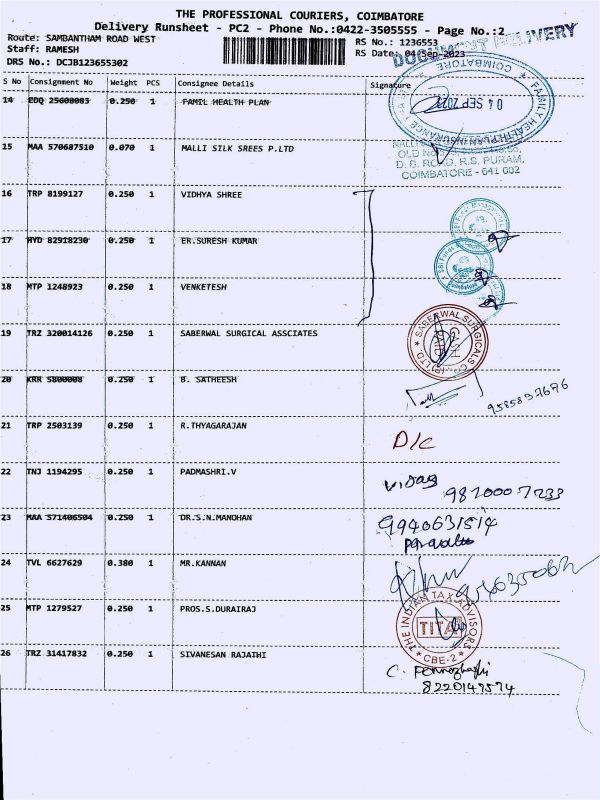 THE PROFESSIONAL COURIERS, COIMBATORE
Delivery Runsheet - PC2 - Phone No.:0422-3505555 - Page No.:2
Route: SAMBANTHAM ROAD WEST
Staff: RAMESH
DRS No.: DCJB123655302
RS No.: 1236553
RS Date: 04-Sep-2023
DOCUMENT DELIVERY
S No Consignment No Weight PCS Consignee Details Signature
14 EDQ 25608083 0.250 1 FAMIL HEALTH PLAN
COIMBATORE
04 SEP 2023
15 MAA 570687510 0.070 1 MALLI SILK SREES P.LTD
D. B. ROAD, R.S. PURAM,
COIMBATORE - 641 002
16 TRP 8199127 0.250 1 VIDHYA SHREE
17 HYD 82918230 0.250 1 ER.SURESH KUMAR
18 MTP 1248923 0.250 1 VENKETESH
19 TRZ 320014126 0.250 1 SABERWAL SURGICAL ASSCIATES
SABERWAL SURGICALS
20 KRR 5800008 0.250 1 B. SATHEESH
21 TRP 2503139 0.250 1 R.THYAGARAJAN
D/C
22 TNJ 1194295 0.250 1 PADMASHRI.V
23 MAA 571406504 0.250 1 DR.S.N.MANOHAN
9940631514
24 TVL 6627629 0.380 1 MR.KANNAN
25 MTP 1279527 0.250 1 PROS.S.DURAIRAJ
THE INDIAN TAX ADVISORS
TITA
CBE-2
26 TRZ 31417832 0.250 1 SIVANESAN RAJATHI
8220147574